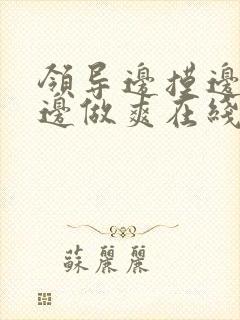 領导邊摸邊
邊做爽在綫
蘇麗麗